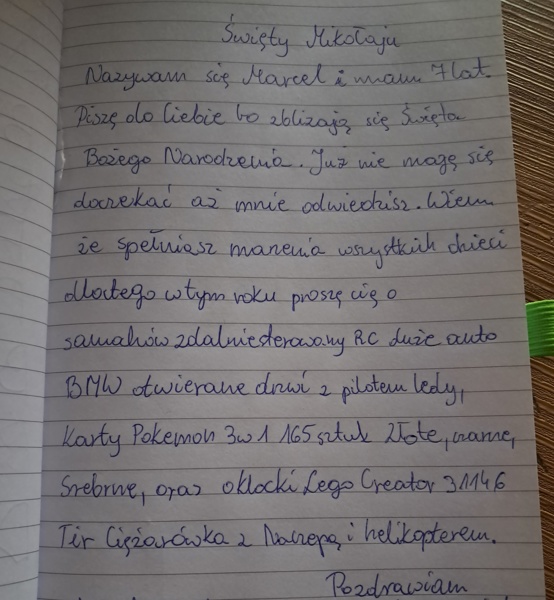 Święty Mikołaju
Nazywam się Marcel i mam 7 lat.
Piszę do Ciebie bo zbliżają się Święta
Bożego Narodzenia. Już nie mogę się
doczekać aż mnie odwiedzisz. Wiem
że spełniasz marzenia wszystkich dzieci
dlatego w tym roku proszę cię o
samahów zdalniesterowany RC duże auto
BMW otwierane drzwi z pilotem ledy,
Karty Pokemon 3w1 165 sztuk Złote, czarne,
Srebrne, oraz oklocki Lego Creator 31146
Tir Ciężarówka z Naczepą i helikopterem.
Pozdrawiam